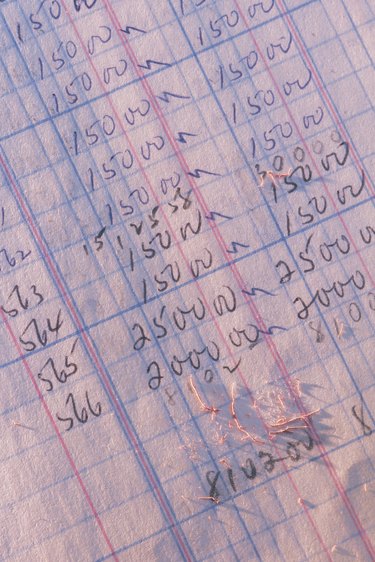 150 00 150 00
150 00 150 00
150 00 150 00
150 00 150 00
150 00 150 00
150 00 30000
15 12538 150 00
562 150 00 150 00
563 150 00 2500 00
564 2500 00 2000
565 2000 00 8100
566 8 02
810200 8